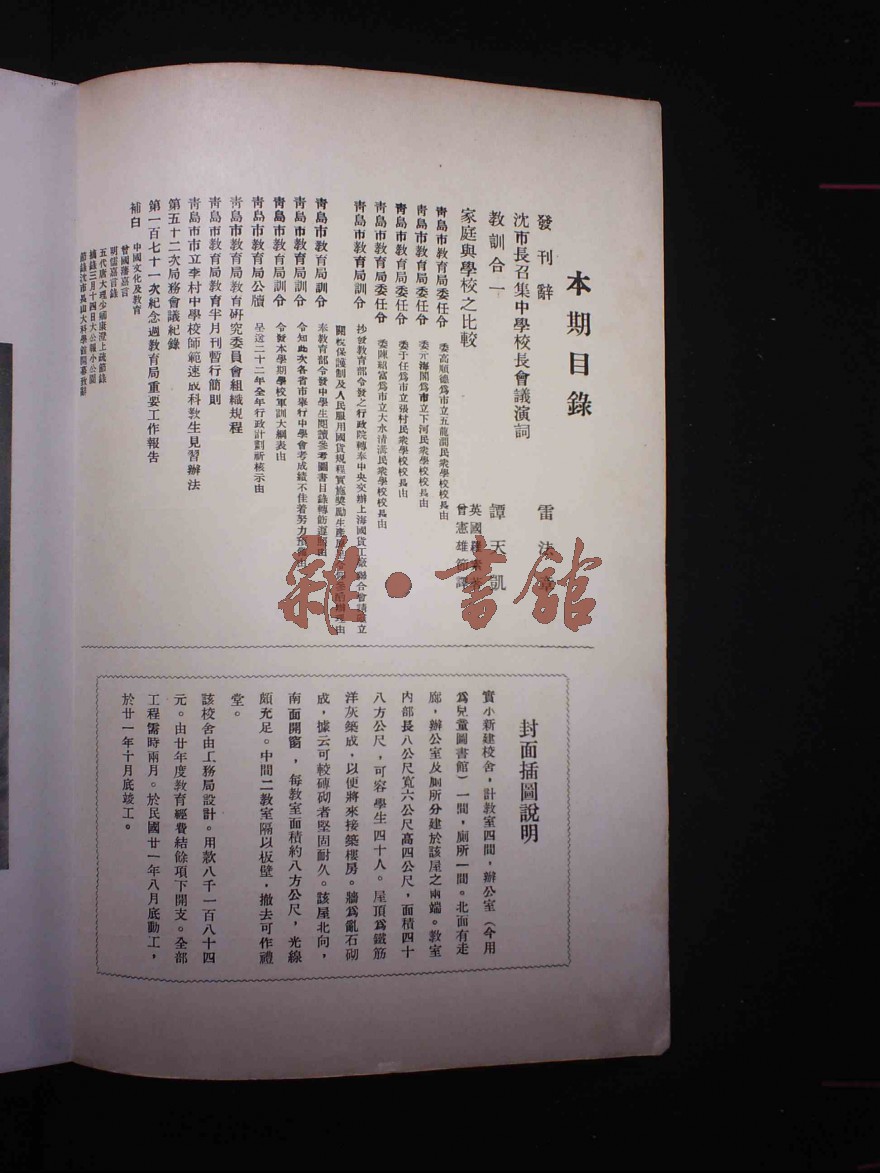 本期目錄
發刊辭
雷法
沈市長召集中學校長會議演詞
教訓合一
譚天凱
家庭與學校之比較
英國羅素
曾憲雄節譯
青島市教育局委任令 委高順德為市立五龍澗民衆學校校長由
青島市教育局委任令 委元海閣為市立下河民衆學校校長由
青島市教育局委任令 委于任為市立張村民衆學校校長由
青島市教育局委任令 委陳紹富為市立大水清溝民衆學校校長由
青島市教育局訓令 抄發教育部令發之行政院轉奉中央交辦上海國貨工廠聯合會請設立
關稅保護制及人民服用國貨規程實施獎勵生產
青島市教育局訓令 奉教育部令發中學生閱讀參考圖書目錄轉飭遵照由
青島市教育局訓令 令知此次各省市舉行中學會考成績不佳着努力
青島市教育局訓令 令發本學期學校軍訓大綱表由
青島市教育局公牘 呈送二十二年全年行政計劃祈核示由
青島市教育局教育研究委員會組織規程
青島市教育局教育半月刊暫行簡則
青島市市立李村中學校師範速成科教生見習辦法
第五十二次局務會議紀錄
第一百七十一次紀念週教育局重要工作報告
補白 中國文化及教育
曾國藩嘉言
明儒嘉言錄
五代唐大理少卿康澄上疏節錄
摘錄三月十四日大公報小公園
節錄沈市長山大科學館開幕致辭
封面插圖說明
實小新建校舍，計教室四間，辦公室（今用
為兒童圖書館）一間，廁所一間。北面有走
廊，辦公室及廁所分建於該屋之兩端。教室
內部長八公尺寬六公尺高四公尺，面積四十
八方公尺，可容學生四十人。屋頂為鐵筋
洋灰築成，以便將來接築樓房。牆為亂石砌
成，據云可較磚砌者堅固耐久。該屋北向，
南面開窗，每教室面積約八方公尺，光線
頗充足。中間二教室隔以板壁，撤去可作禮
堂。
該校舍由工務局設計。用款八千一百八十四
元。由廿年度教育經費結餘項下開支。全部
工程需時兩月。於民國廿一年八月底動工，
於廿一年十月底竣工。
雜·書館